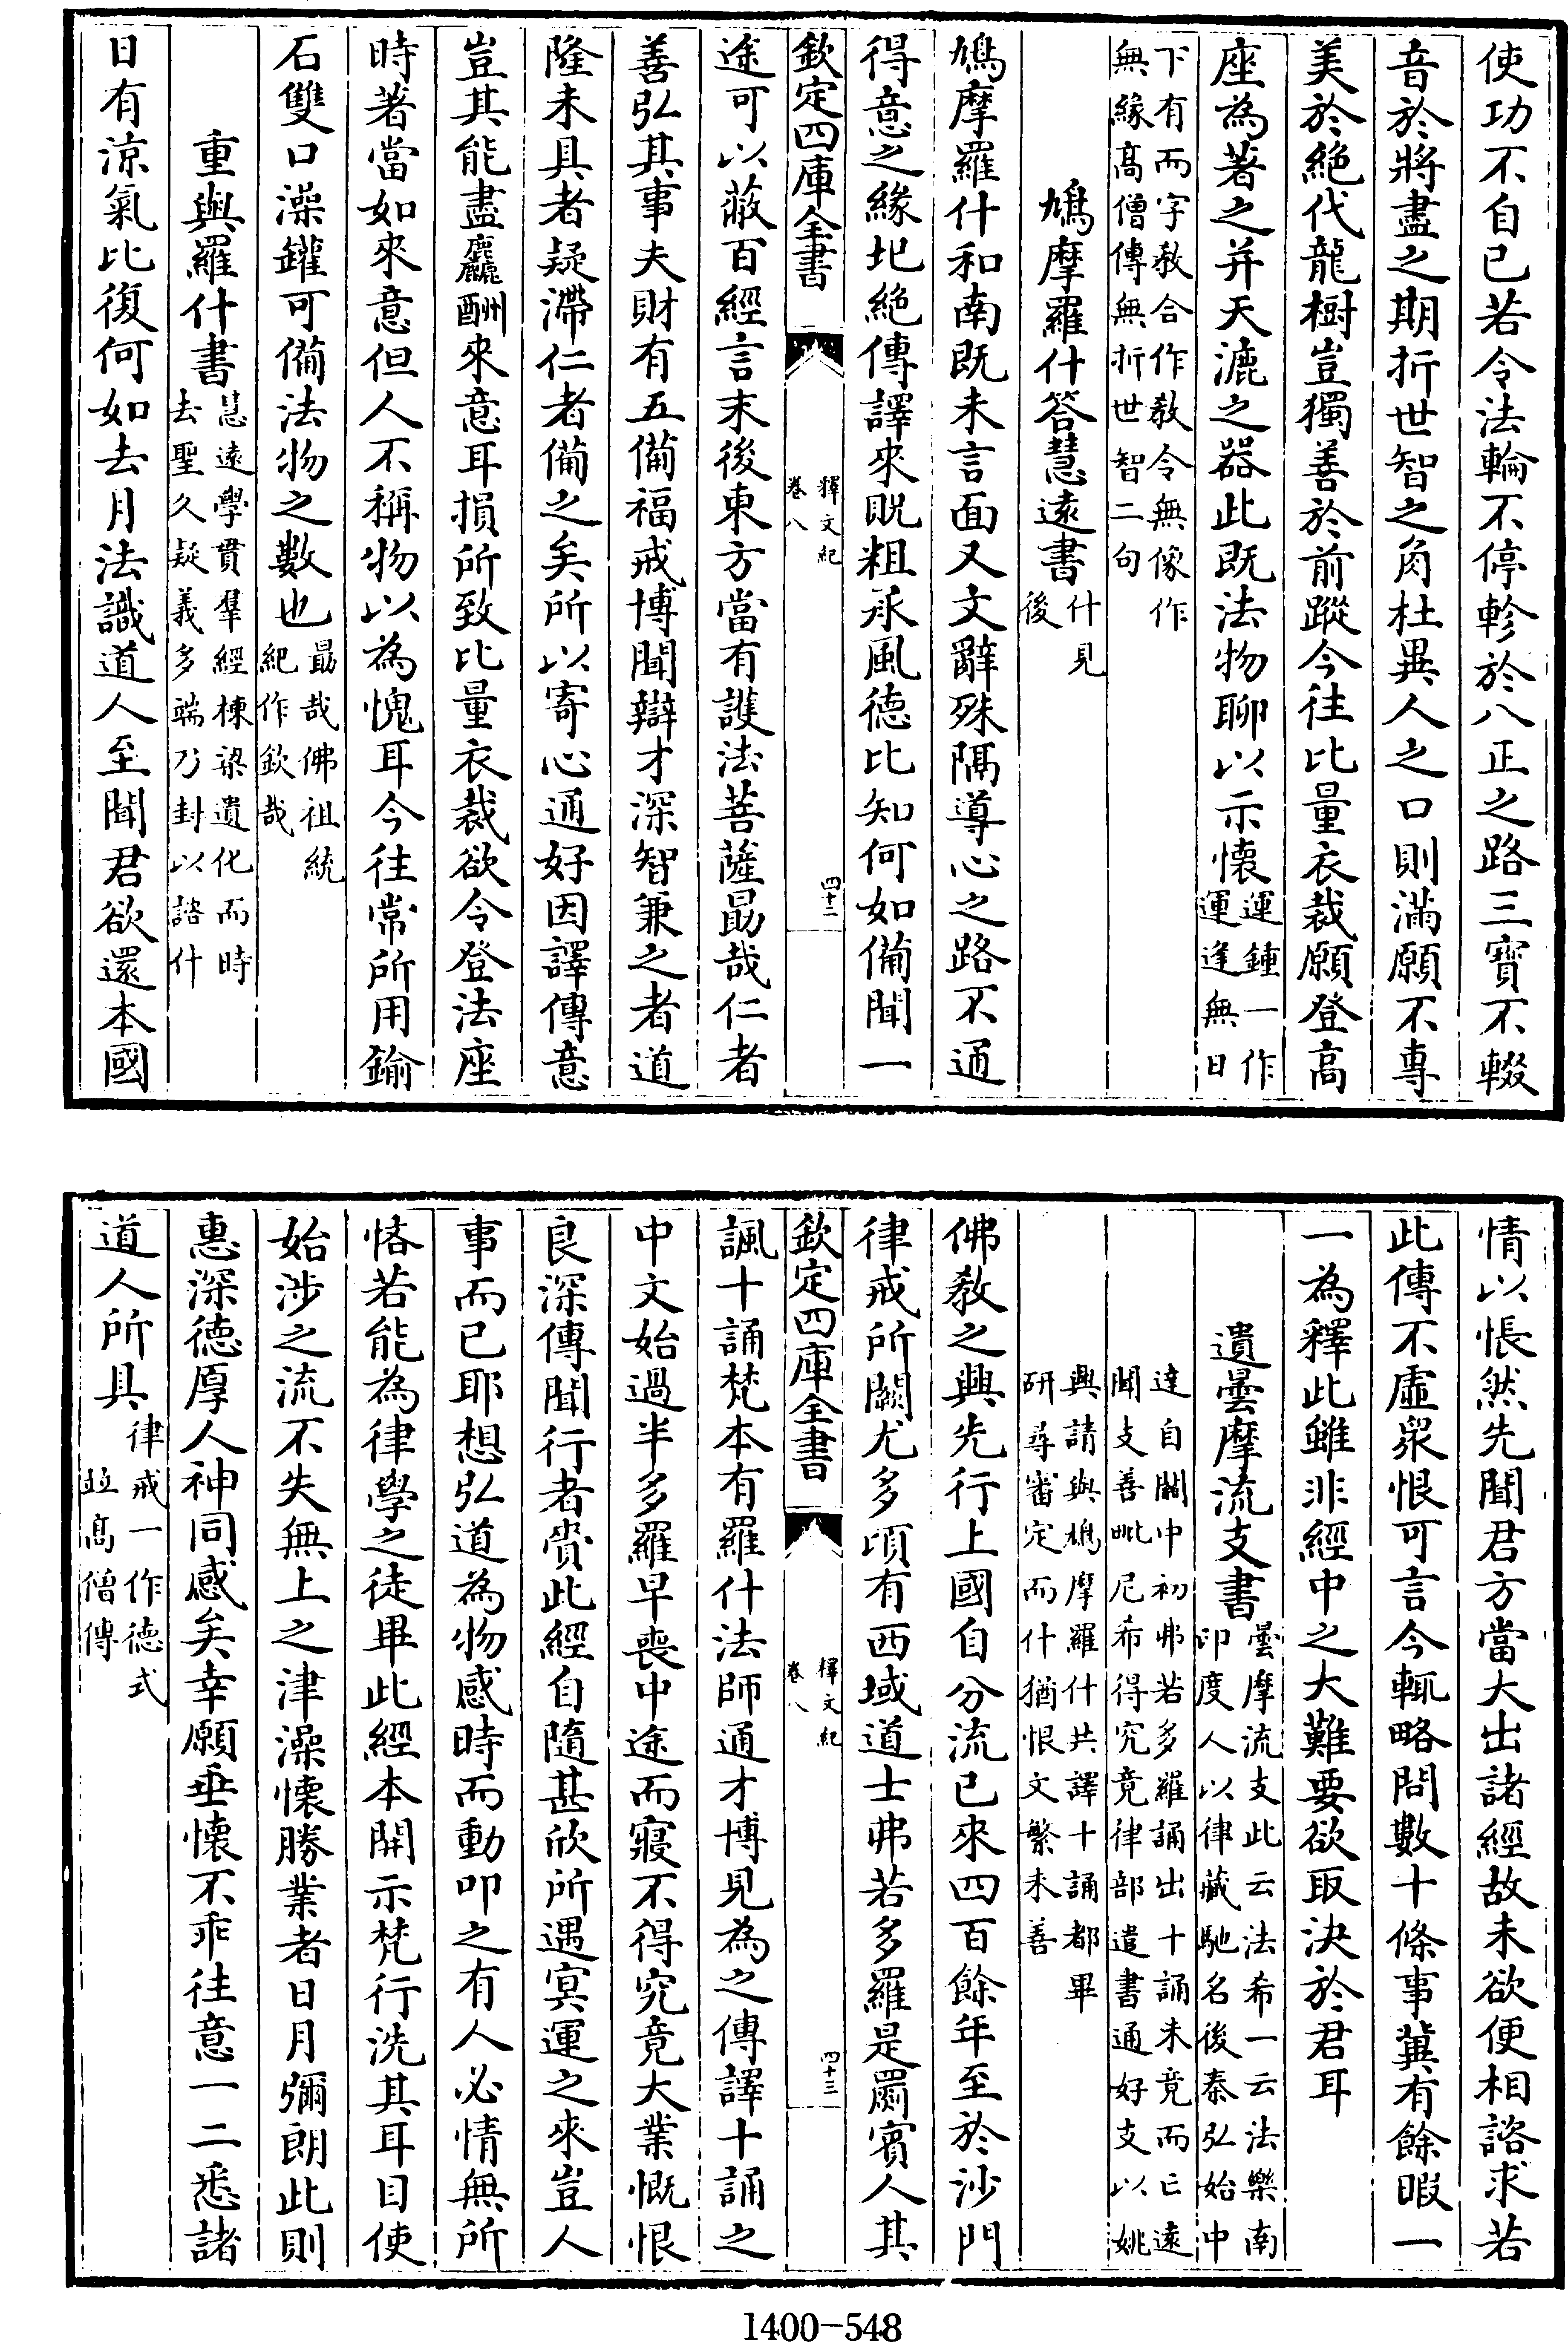 使功不自已若令法輪不停軫於八正之路三寶不輟
音於將盡之期折世智之角杜異人之口則滿願不專
美於絶代龍樹豈獨善於前蹤今往比量衣裁願登高
座為著之并天漉之器此既法物聊以示懷運鍾一作
運逢無日
下有而字教合作教令無像作
無緣髙僧傳無折世智二句
鳩摩羅什答慧遠書什見
後
鳩摩羅什和南既未言面又文辭殊隔導心之路不通
得意之緣圯絶傳譯來貺粗承風德比知何如備聞一
欽定四庫全書
釋文紀
卷八
四十二
途可以蔽百經言末後東方當有護法菩薩勗哉仁者
善弘其事夫財有五備福戒博聞辯才深智兼之者道
隆未具者疑滯仁者備之矣所以寄心通好因譯傳意
豈其能盡麤酬來意耳損所致比量衣裁欲令登法座
時著當如來意但人不稱物以為愧耳今往常所用鍮
石雙口澡罐可備法物之數也勗哉佛祖統
紀作欽哉
重與羅什書慧遠學貫羣經棟梁遺化而時
去聖久疑義多端乃封以諮什
日有涼氣比復何如去月法識道人至聞君欲還本國
情以悵然先聞君方當大出諸經故未欲便相諮求若
此傳不虛衆恨可言今輒略問數十條事冀有餘暇一
一為釋此雖非經中之大難要欲取決於君耳
遺曇摩流支書曇摩流支此云法希一云法樂南
印度人以律藏馳名後秦弘始中
達自關中初弗若多羅誦出十誦未竟而亡遠
聞支善毗尼希得究竟律部遣書通好支以姚
興請與鳩摩羅什共譯十誦都畢
研尋審定而什猶恨文繁未善
佛教之興先行上國自分流已來四百餘年至於沙門
律戒所闕尤多頃有西域道士弗若多羅是罽賓人其
欽定四庫全書
釋文紀
卷八
四十三
諷十誦梵本有羅什法師通才博見為之傳譯十誦之
中文始過半多羅早喪中途而寢不得究竟大業慨恨
良深傳聞行者賫此經自隨甚欣所遇冥運之來豈人
事而已耶想弘道為物感時而動叩之有人必情無所
悋若能為律學之徒畢此經本開示梵行洗其耳目使
始涉之流不失無上之津澡懷勝業者日月彌朗此則
惠深徳厚人神同感矣幸願垂懷不乖往意一二悉諸
道人所具律戒一作徳式
並髙僧傳
1400-548